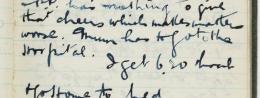 has nothing to give
that cheers which makes matters
worse. Mum has to go to the
Hospital.
I get 6.20 boat
to home to bed